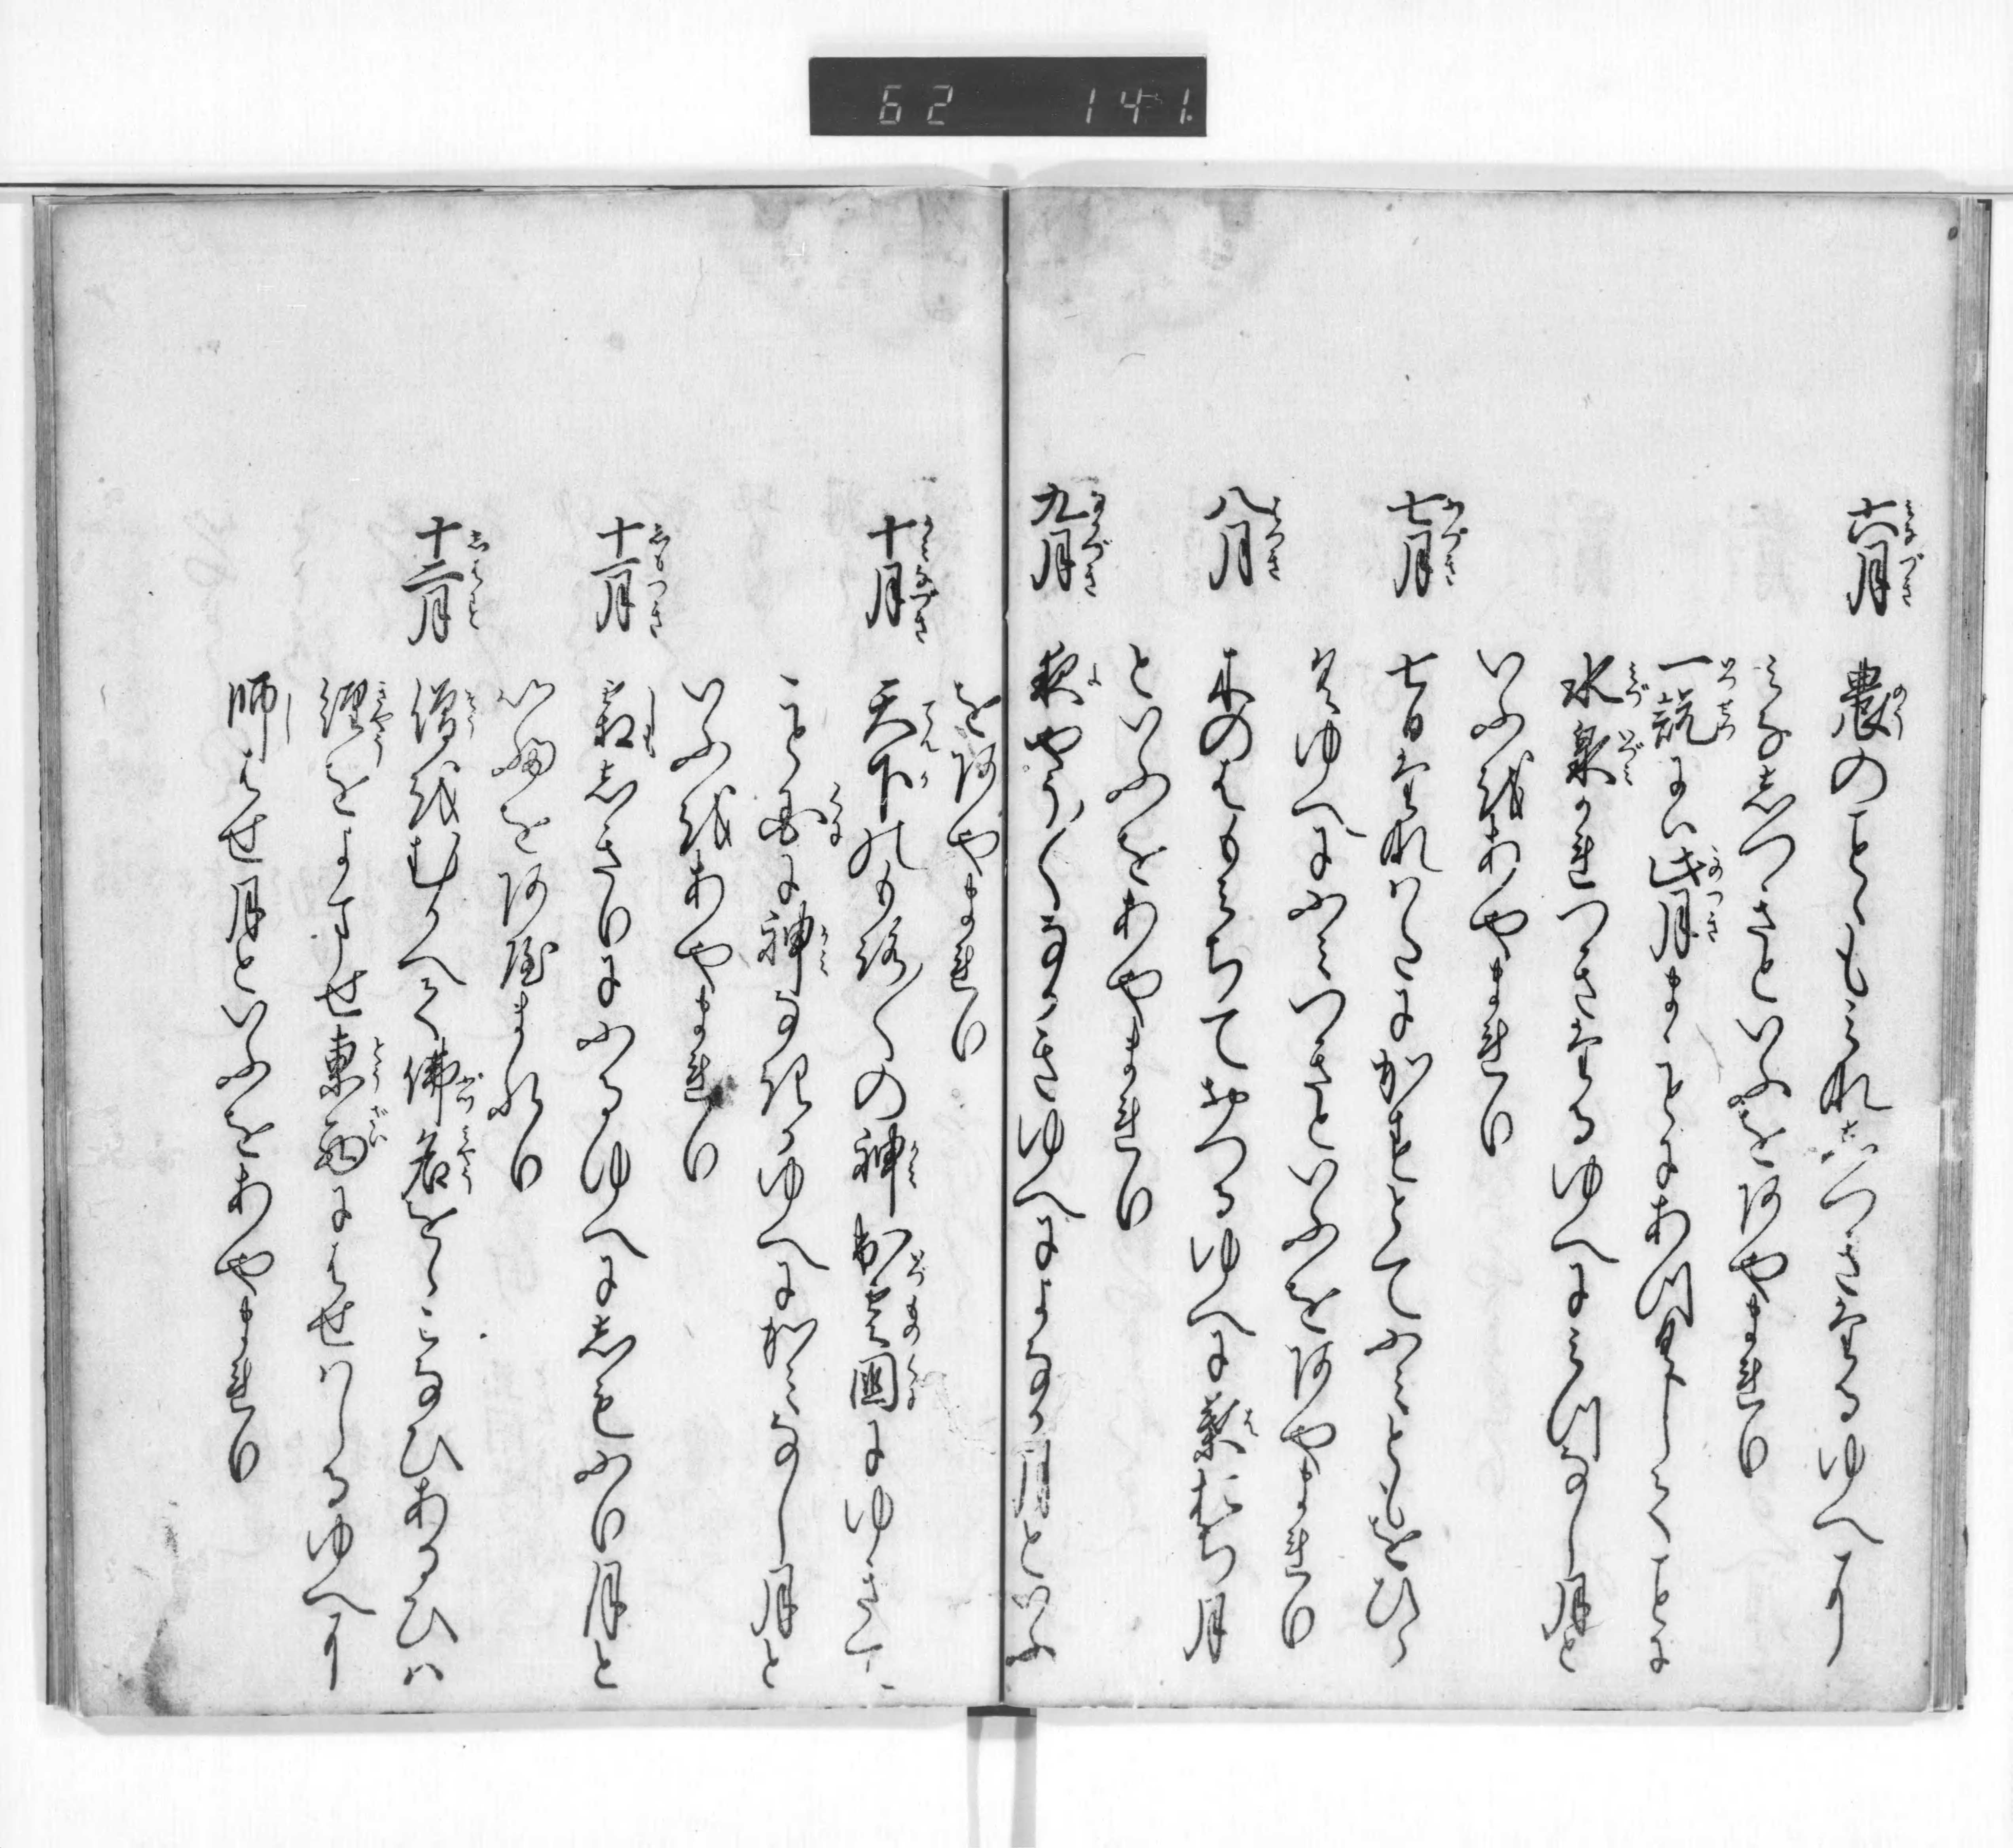 62 141
六月 農のことゝもみなしつきたるゆへに
みなしつきといふをあやまれり
一説には此月まことにあつくしてことに
水泉かれつきたるゆへにみつなし月と
いふをあやまれり
七月 七日たなはたにかすとてふみともをひら
くゆへにふみつきといふをあやまれり
八月 木のはもみちておつるゆへに葉おち月
といふをあやまれり
九月 夜やう〱なかきゆへによなか月といふ
をあやまれり
十月 天下のもろ〱の神出雲国にゆきて
こと国に神なきかゆへにかみなし月と
いふをあやまれり
十一月 霜しきりにふるゆへにしもふり月と
いふをあやまれり
十二月 僧をむかへて佛名をゝこなひあるひは
経をよませ東西にはせはしるゆへに
師はせ月といふをあやまれり